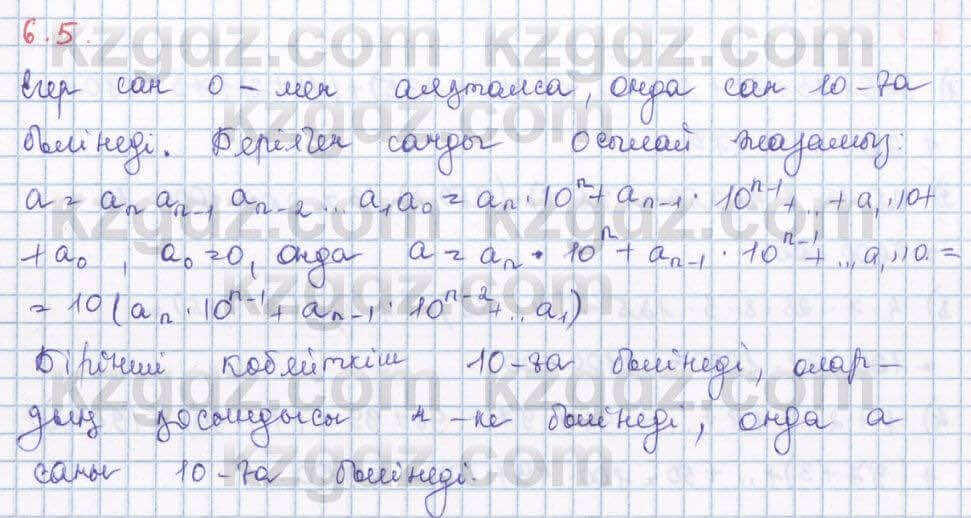 6.5.
Егер сан 0-мен аяқталса, онда сан 10-ға
бөлінеді. Берілген санды осылай жазамыз:
a = aₙ aₙ₋₁ aₙ₋₂ ... a₁a₀ = aₙ · 10ⁿ + aₙ₋₁ · 10ⁿ⁻¹ + .. + a₁ · 10 +
+ a₀, a₀ = 0, онда a = aₙ · 10ⁿ + aₙ₋₁ · 10ⁿ⁻¹ + ... a₁ · 10 =
= 10 (aₙ · 10ⁿ⁻¹ + aₙ₋₁ · 10ⁿ⁻² + .. a₁)
Бірінші көбейткіш 10-ға бөлінеді, олар-
дың қосындысы 4-ке бөлінеді, онда а
саны 10-ға бөлінеді.
kzgdz.com
kzgdz.com
kzgdz.com
kzgdz.com
kzgdz.com
kzgdz.com